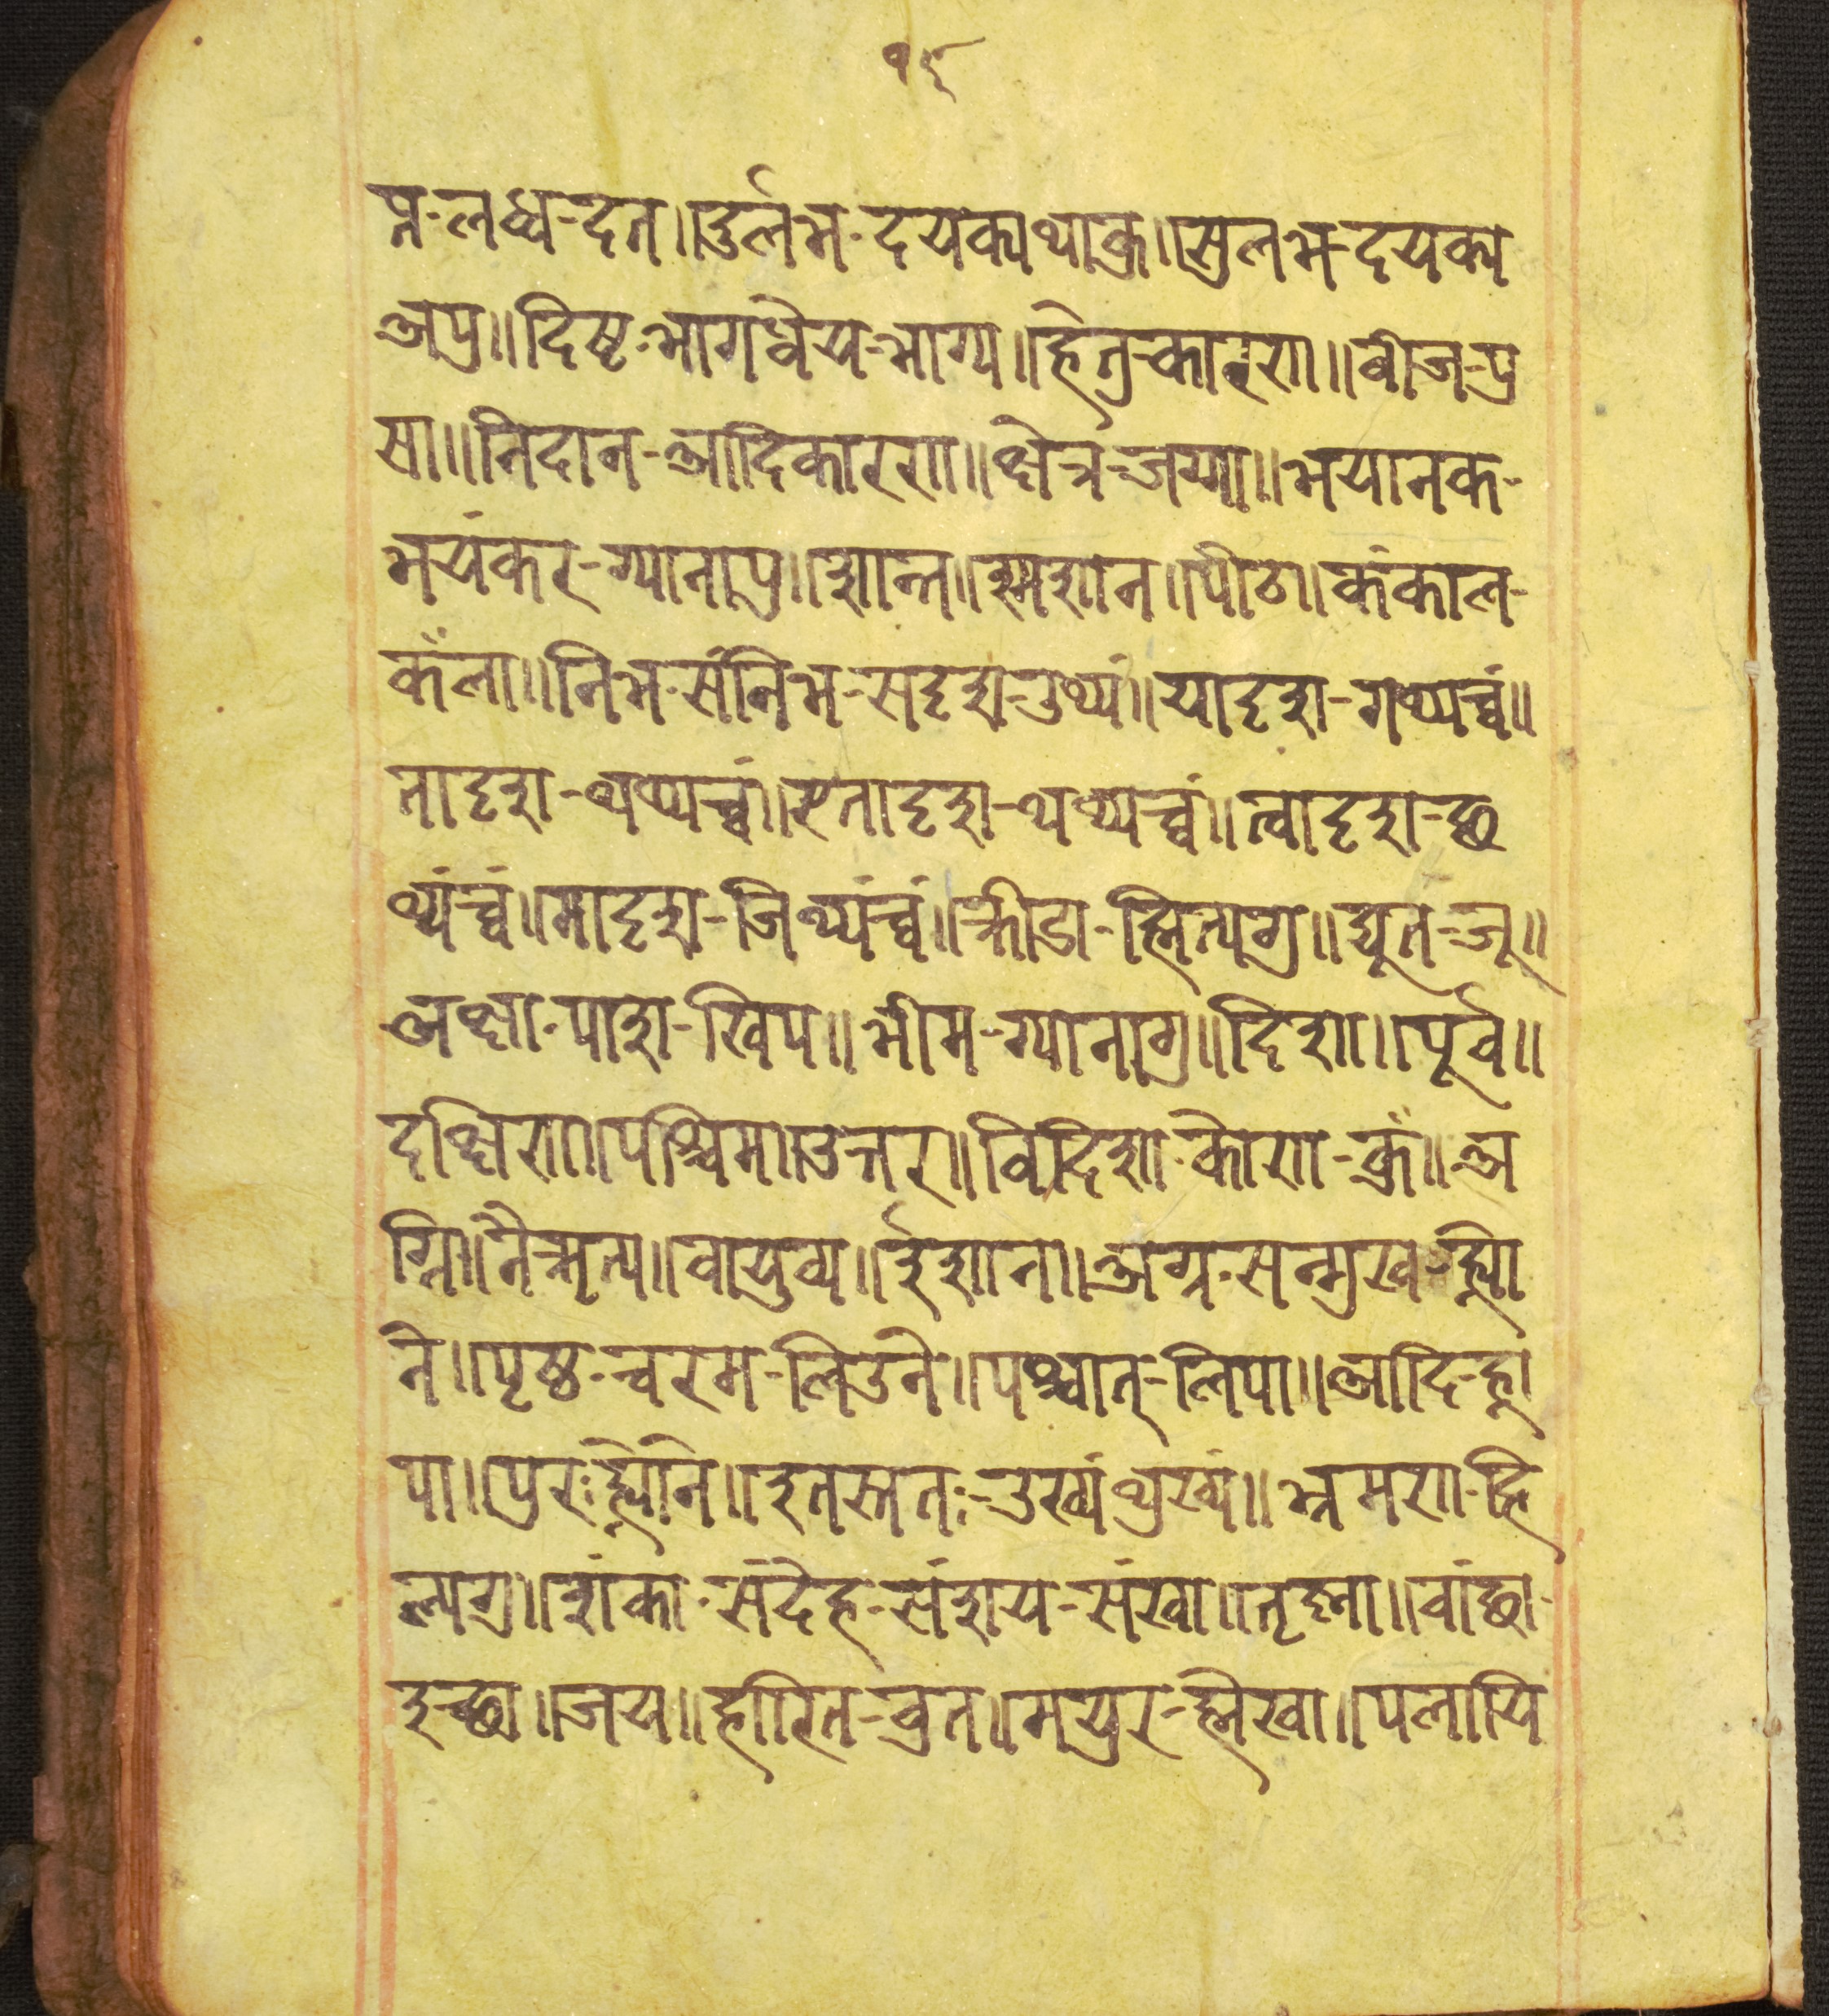 १५
प्न-लब्ध-दत॥दुर्लभ-दयक्यथाक्र॥सुलभ-दयक्य
अप्र॥दिष्ट-भागधेय-भाग्य॥हेतु-कारण॥बीज-पु
सा॥निदान-आदिकारण॥क्षेत्र-जग्गा॥भयानक-
भयंकर-ग्यानाप्र॥शान्त॥स्मशान॥पीठ॥कंकाल-
कँला॥निभ-संनिभ-सदृश-उथ्यं॥यादृश-गथ्यच्वं॥
तादृश-थथ्यच्वं॥एतादृश-थथ्यच्वं॥त्वादृश-छ
थ्यंच्वं॥मादृश-जिथ्यंच्वं॥क्रीडा-ह्मित्यग्र॥द्यूत-जू॥
अक्षा-पाशा-खिप॥भीम-ग्यानाग्र॥दिशा॥पूर्व॥
दक्षिण॥पश्चिम॥उत्तर॥विदिशा-कोण-क्रुँ॥अ
ग्नि॥नैऋत्य॥वायुव्य॥ईशान॥अग्र-सन्मुख-ह्ण्यि
ने॥पृष्ठ-चरम-लिउने॥पश्चात्-लिपा॥आदि-ह्णा
पा॥पुरः-ह्ण्यिने॥इतस्ततः-उख्यंथुख्यं॥भ्रमण-हि
ल्यग्र॥शंका-संदेह-संशय-संखा॥तृष्णा॥वांछा-
इच्छा॥जय॥हारित-बुत॥मयुर-ह्मेखा॥पलायि